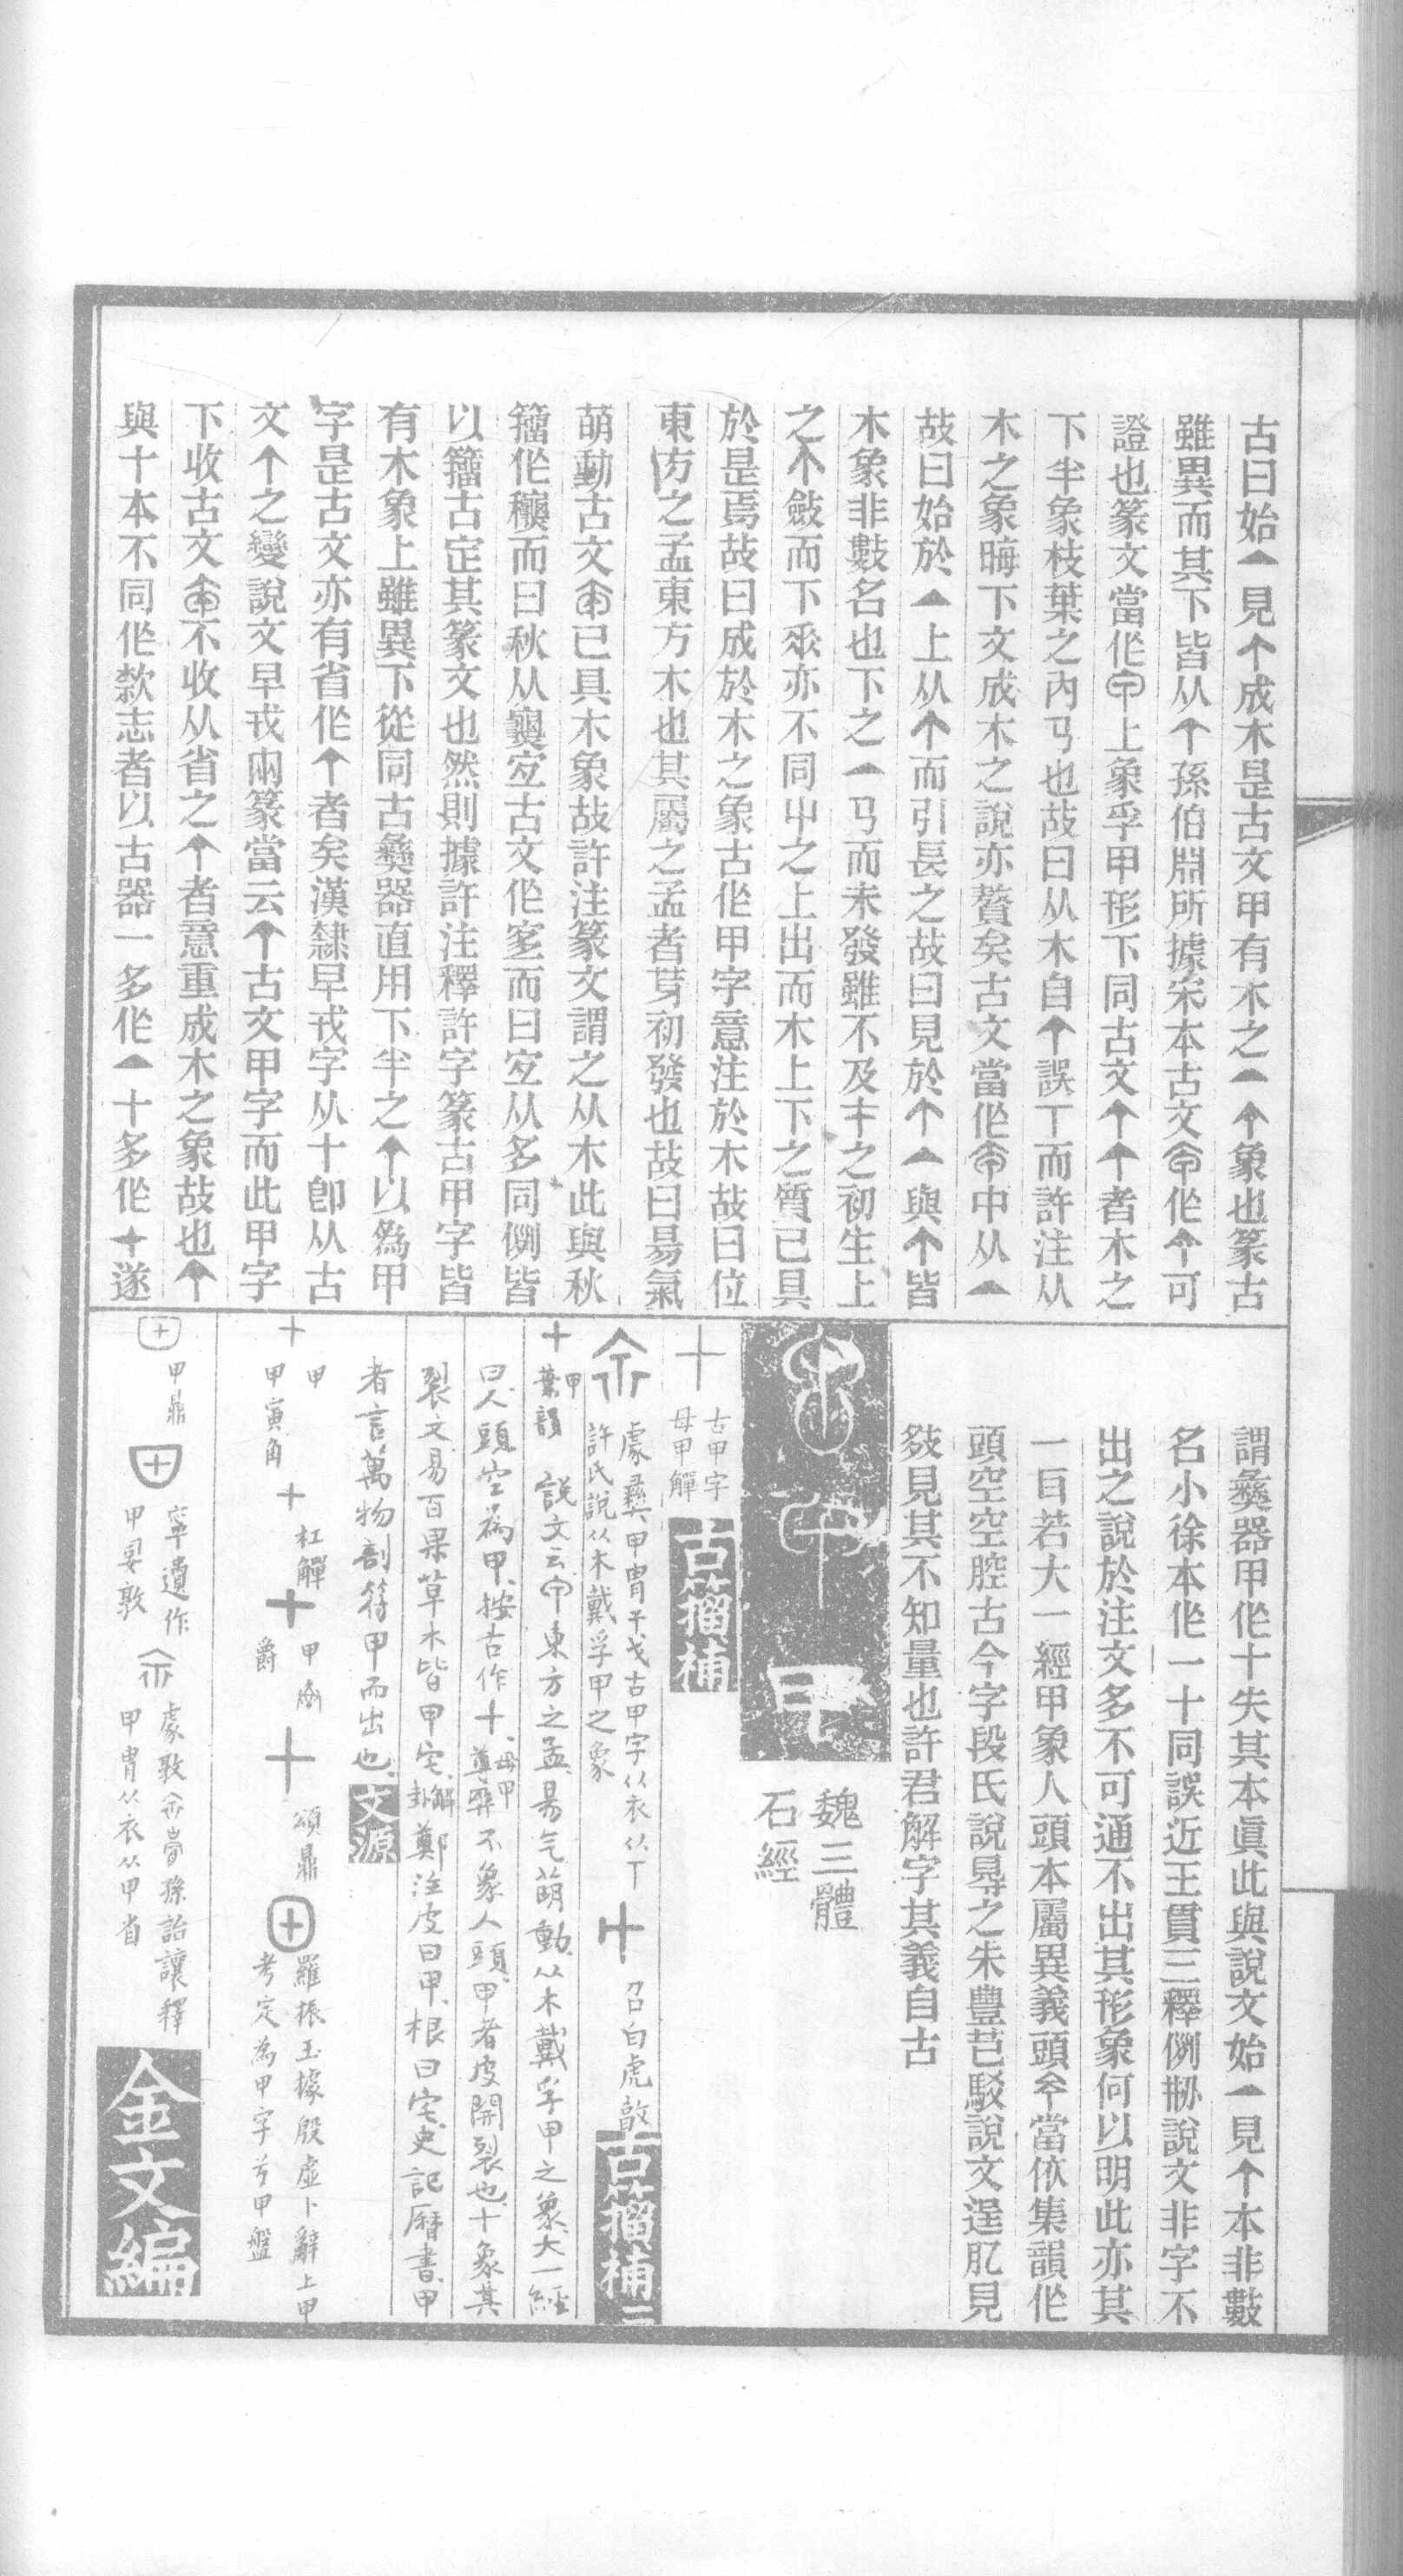 古曰始一見㐃成木是古文甲有木之一㐃象也篆古
雖異而其下皆从㐃孫伯淵所據宋本古文作可
證也篆文當作上象孚甲形下同古文者木之
下半象枝葉之內㔾也故曰从木自誤丅而許注从
木之象晦下文成木之說亦贅矣古文當作中从
故曰始於上从而引長之故曰見於與皆
木象非數名也下之一而未發雖不及之初生上
之斂而下亦不同屮之上出而木上下之質已具
於是焉故曰成於木之象古作甲字意注於木故曰位
東方之孟東方木也其屬之孟者芽初發也故曰昜氣
萌動古文已具木象故許注篆文謂之从木此與秋
籒作而曰秋从古文作而曰从多同例皆
以籒古定其篆文也然則據許注釋許字篆古甲字皆
有木象上雖異下從同古彝器直用下半之以爲甲
字是古文亦有省作者矣漢隸早戎字从十卽从古
文之變說文早戎兩篆當云古文甲字而此甲字
下收古文不收从省之者意重成木之象故也
與十本不同作款志者以古器一多作十多作遂
謂彝器甲作十失其本眞此與說文始一見本非數
名小徐本作一十同誤近王貫三釋例拗說文非字不
出之說於注文多不可通不出其形象何以明此亦其
一目若大一經甲象人頭本屬異義頭當依集韻作
頭空空腔古今字段氏說尋之朱豐芑駁說文逞肊見
敍見其不知量也許君解字其義自古
甲
魏三體
石經
十 古甲字
母甲觶
古籀補
彔彝甲冑干戈古甲字从衣从丅
許氏說从木戴孚甲之象
十 召白虎敦
古籀補二
十 甲
葉韻
說文云東方之孟昜气萌動从木戴孚甲之象大一經
曰人頭空為甲按古作十母甲
尊彝不象人頭甲者皮開裂也十象其
裂文易百果草木皆甲宅解
卦鄭注皮曰甲根曰宅史記曆書甲
者言萬物剖符甲而出也
文源
十 甲
甲寅角
十 杠觶
十 甲
爵
十 頌鼎
羅振玉據殷虛卜辭上甲
考定為甲字兮甲盤
甲鼎
寧遺作
甲㚸敦
彔敦孫詒讓釋
甲冑从衣从甲省
金文編